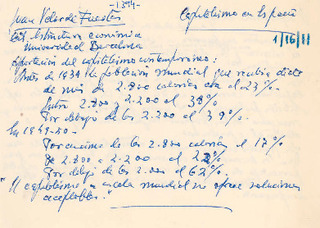 -1394-
Juan Velarde Fuertes
Capitalismo en España
Cat. Estructura económica
Universidad Barcelona
1/16/88
Aportación del capitalismo contemporáneo:
Antes de 1939 la población mundial que recibía dieta
de más de 2.800 calorías era el 23%.
Entre 2.800 y 2.200 el 38%
Por debajo de los 2.200 el 39%.
En 1949-50 -
Por encima de las 2.800 calorías el 17%
de 2.800 a 2.200 el 22%
Por debajo de los 2.200 el 62%.
"El capitalismo a escala mundial no ofrece soluciones
aceptables."